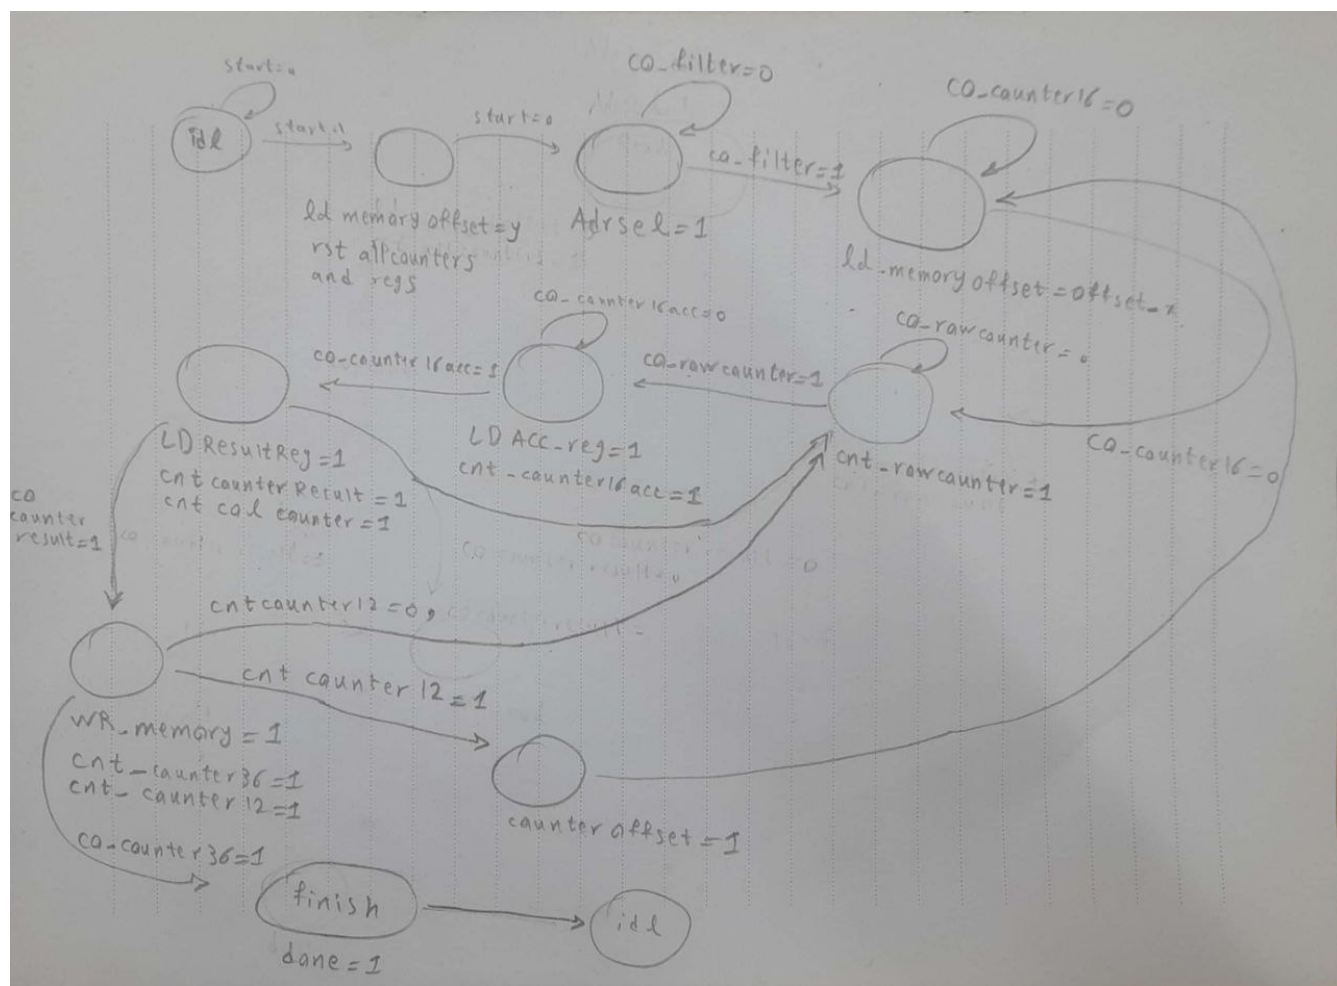 start=0
idl
start=1
start=0
co_filter=0
co_filter=1
co_counter16=0
ld memory offset=y
rst all counters
and regs
Adrsel=1
ld_memory offset=offset_x
co_counter16acc=0
co_rawcounter=0
co_counter16acc=1
co_rawcounter=1
co_counter16=0
LD ResultReg=1
cnt counter Result=1
cnt cal counter=1
LD ACC_reg=1
cnt_counter16acc=1
cnt_rawcounter=1
co
counter
result=1
co counter result=0
cnt counter12=0,
cnt counter 12=1
WR_memory=1
cnt_counter36=1
cnt_counter12=1
counter offset=1
co-counter36=1
finish
idl
done=1